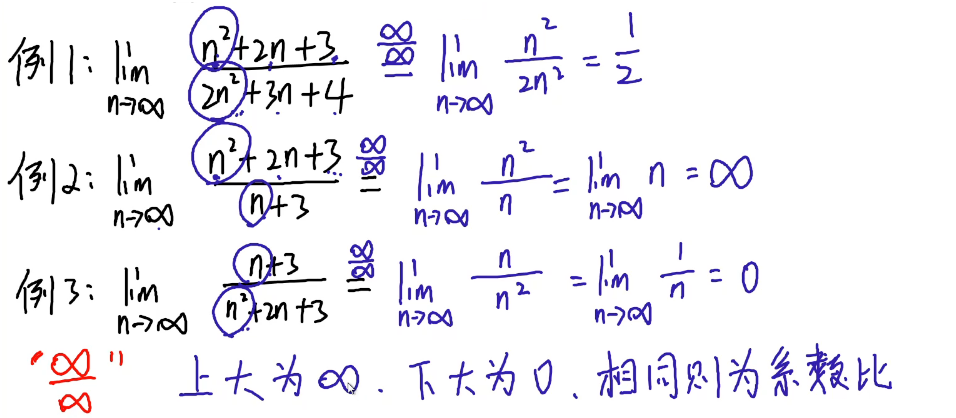 例1: lim n→∞ (n²+2n+3)/(2n²+3n+4) =(∞/∞) lim n→∞ n²/2n² = 1/2
例2: lim n→∞ (n²+2n+3)/(n+3) =(∞/∞) lim n→∞ n²/n = lim n→∞ n = ∞
例3: lim n→∞ (n+3)/(n²+2n+3) =(∞/∞) lim n→∞ n/n² = lim n→∞ 1/n = 0
"∞/∞" 上大为∞. 下大为0、相同则为系数比